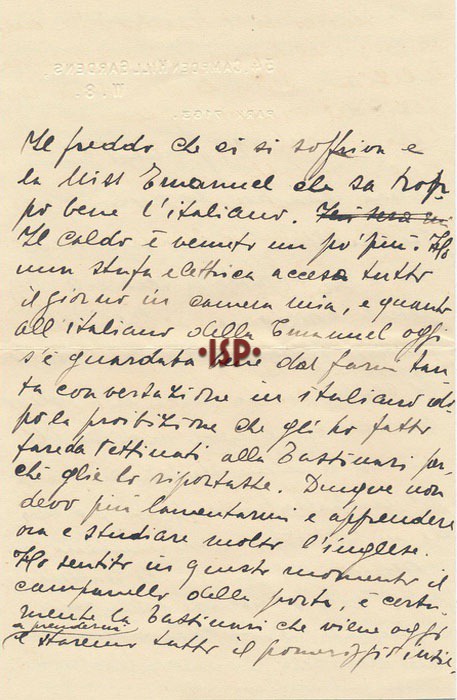 34, CAMPDEN HILL GARDENS,
W. 8.
PARK 7183.
Il freddo che ci si soffriva e
la Miss Emanuel che sa trop-
po bene l'italiano. Ieri sera mi
Il caldo è venuto un po' più. Ho
una stufa elettrica accesa tutto
il giorno in camera mia, e quanto
all'italiano della Emanuel oggi
s'è guardata bene dal farmi tan-
ta conversazione in italiano do-
po la proibizione che gli ho fatto
fare da Pettinati alla Tassinari per-
chè glie lo riportasse. Dunque non
devo più lamentarmi e apprendere
ora e studiare molto l'inglese.
Ho sentito in questo momento il
campanello della porta, è certa-
mente la Tassinari che viene oggi
a prendermi
e staremo tutto il pomeriggio insie-
·ISP·